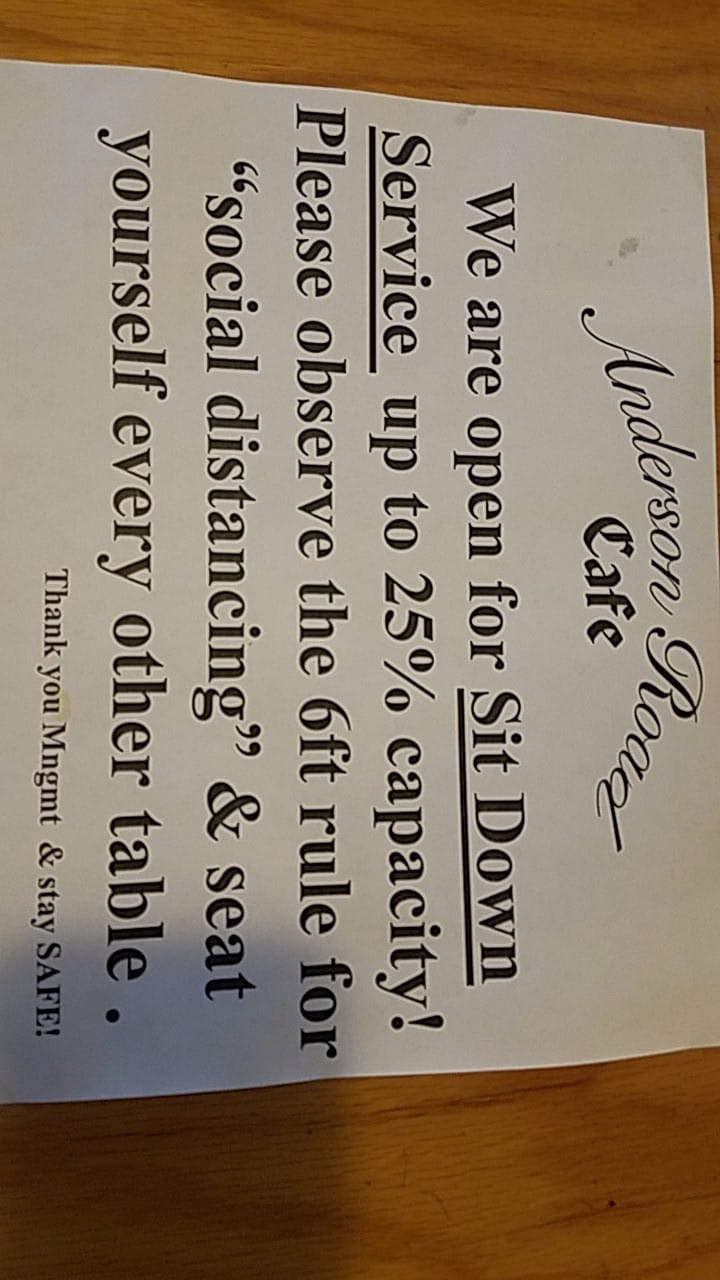 Anderson Road
Cafe
We are open for Sit Down
Service up to 25% capacity!
Please observe the 6ft rule for
“social distancing” & seat
yourself every other table .
Thank you Mngmt & stay SAFE!